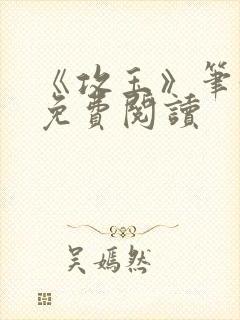 《攻玉》筆
免費閱讀
吳嫣然